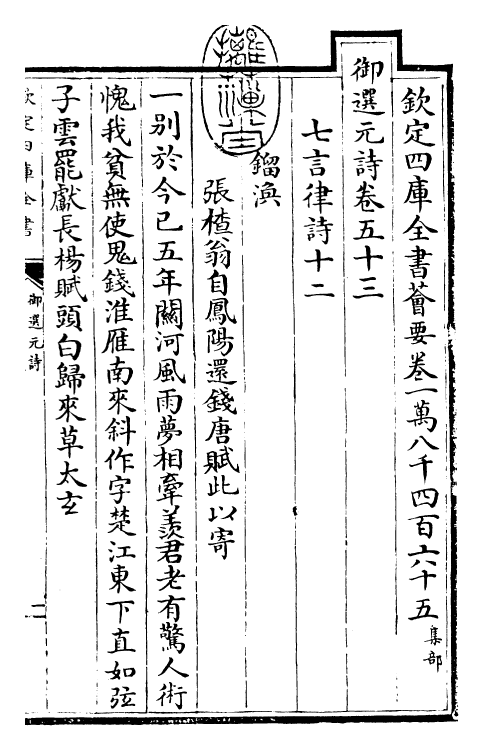 欽定四庫全書薈要卷一萬八千四百六十五 集部
御選元詩卷五十三
七言律詩十二
鎦渙
張樝翁自鳳陽還錢唐賦此以寄
一别於今已五年關河風雨夢相牽羨君老有驚人術
愧我貧無使鬼錢淮雁南來斜作字楚江東下直如弦
子雲罷獻長楊賦頭白歸來草太玄
欽定四庫全書
御選元詩